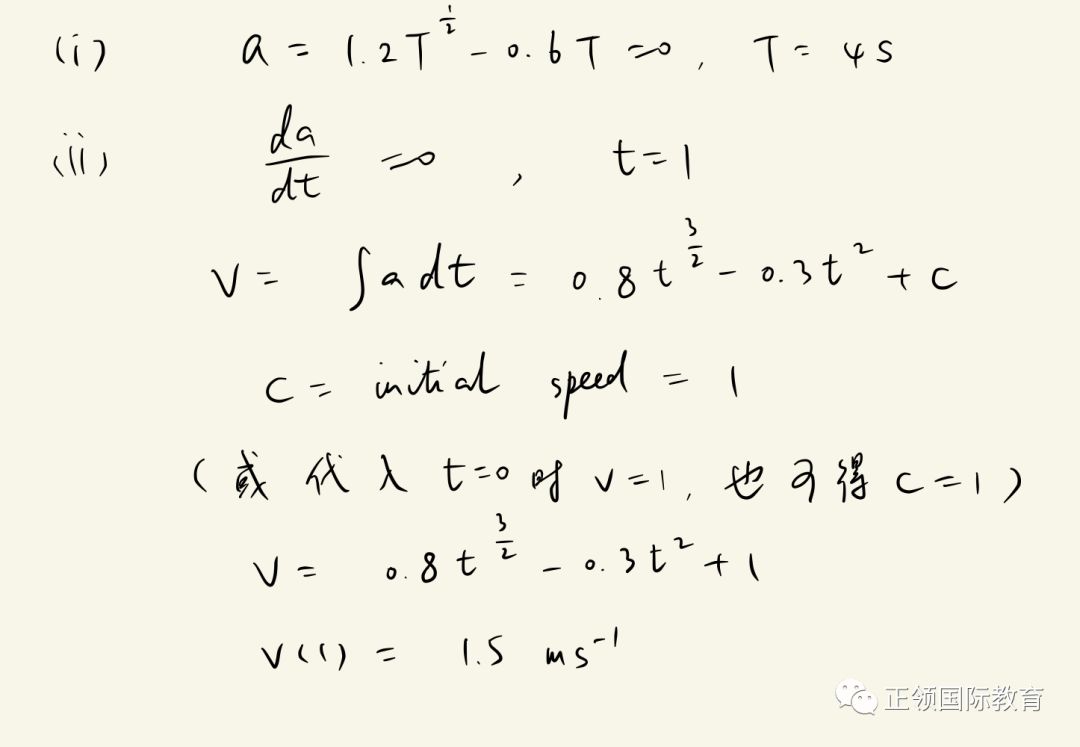 (i) a = 1.2T^{\frac{1}{2}} - 0.6T = 0, T = 4s
(ii) \frac{da}{dt} = 0, t = 1
V = ∫a dt = 0.8t^{\frac{3}{2}} - 0.3t^2 + C
C = initial speed = 1
(或代入 t=0 时 V=1, 也可得 C=1)
V = 0.8t^{\frac{3}{2}} - 0.3t^2 + 1
V(1) = 1.5 ms^{-1}
正领国际教育